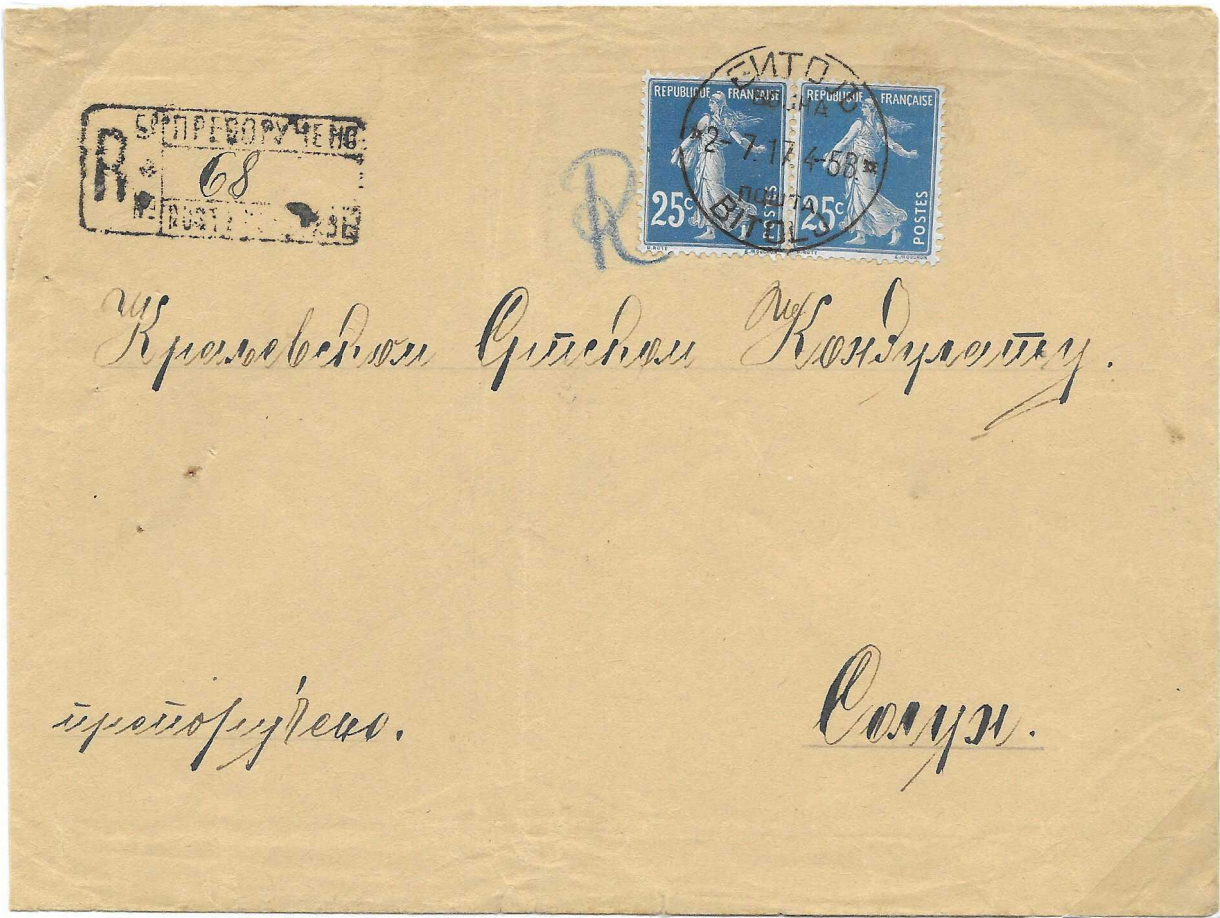 ПРЕПОРУЧЕНО
R
68
R
REPUBLIQUE FRANÇAISE
25c
REPUBLIQUE FRANÇAISE
25c
POSTES
БИТОЉ
2-7.17.4-5В
ПОШТА
BITOLJ
Краљевском Српском Конзулату.
препоручено.
Солун.